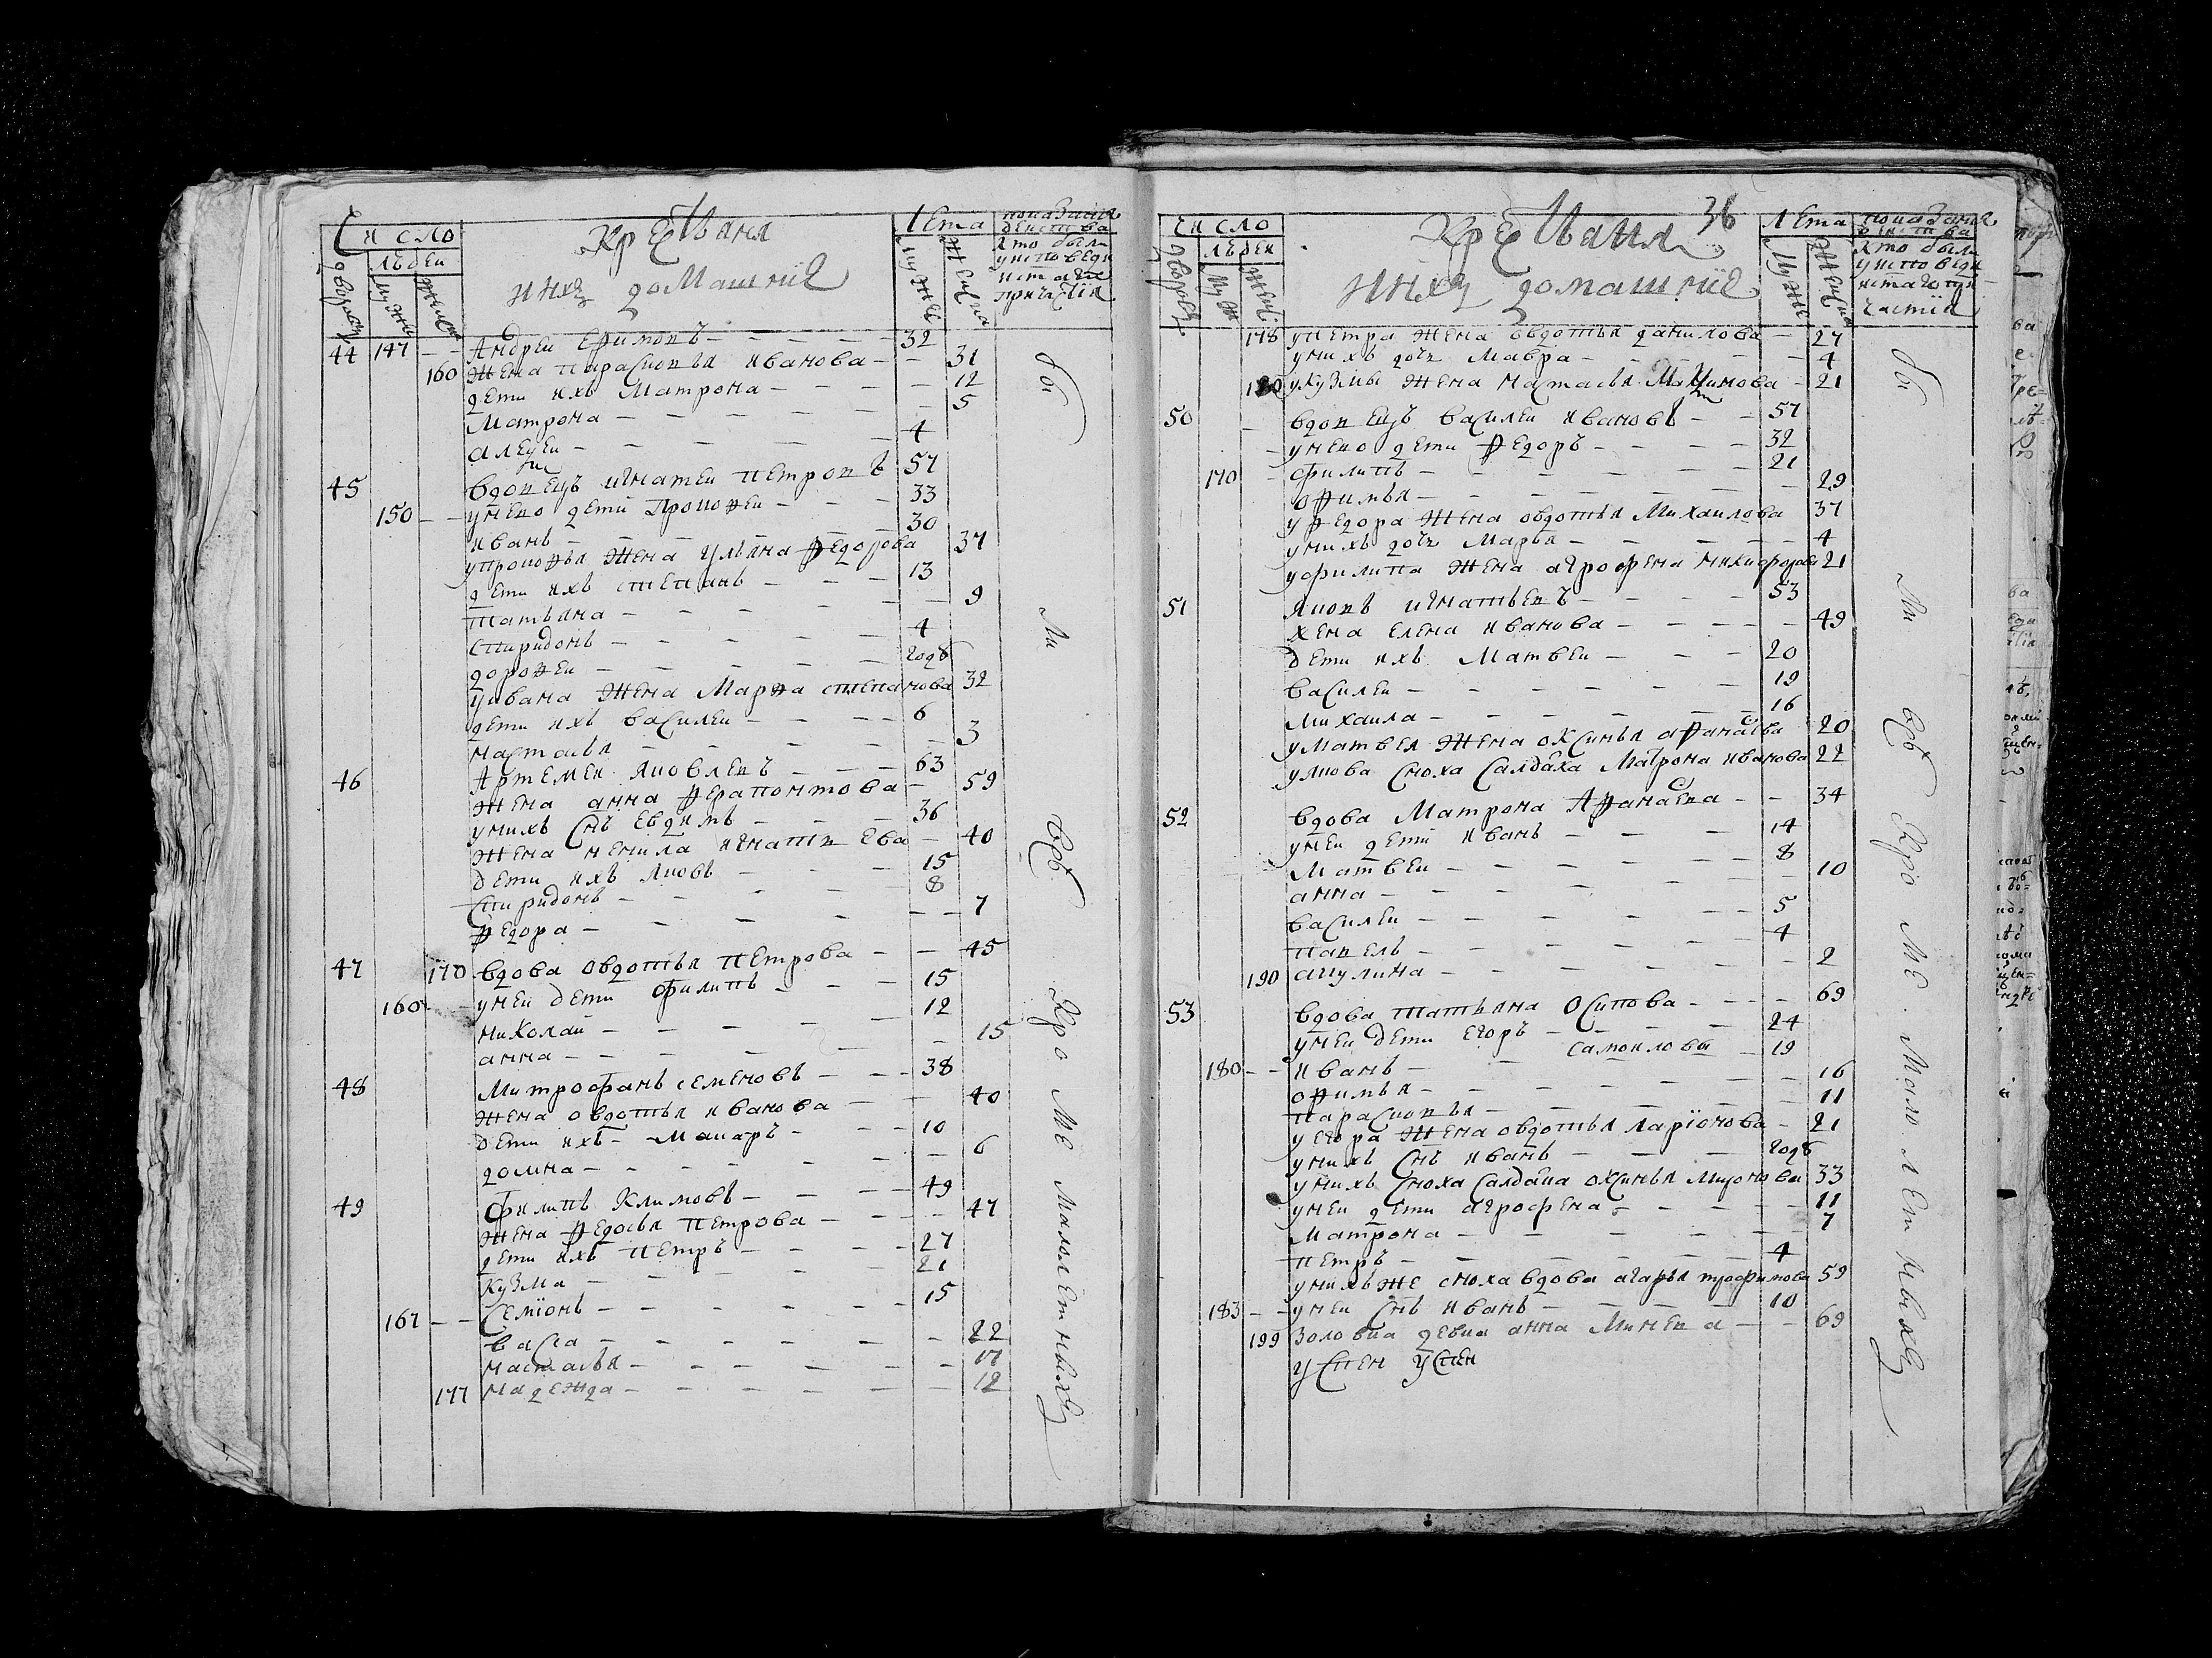 Число
Крестьяня
Лета
показания
действа
людеи
кто были
у исповеди
и с таго
причастия
дворовъ
мужи
женска
и ихъ домашния
мужескъ
женска
44 147 – – Андреи Ефимовъ – – – – 32
160 жена парасковья иванова – – 31
дети ихъ Матрона – – – – 12
Матрона – – – – – – 5
алексеи – – – – – 4
45 вдовецъ игнатеи петровъ 57
150 – – у него дети Прокоѳеи – – – 33
иванъ – – – – – – 30
у прокоѳья жена ульяна ѳедорова 37
дети ихъ степанъ – – – 13
татьяна – – – – – – 9
спиридонъ – – – – – 4
дороѳеи – – – – – годъ
у ивана жена Марѳа степанова 32
дети ихъ василеи – – – – 6
настасья – – – – – – 3
46 Артемеи яковлевъ – – – 63
жена анна ѳерапонтова – 59
у нихъ снъ евдимъ – – – 36
жена ненила игнатиева – 40
дети ихъ яковъ – – – – 15
спиридонъ – – – – 8
ѳедора – – – – – – 7
47 170 вдова овдотья петрова – – 45
160 – у неи дети филипъ – – – 15
николаи – – – – – 12
анна – – – – – – 15
48 Митрофанъ семеновъ – – – 38
жена овдотья иванова – – 40
дети ихъ – макаръ – – – 10
домна – – – – – – – 6
49 филипъ Климовъ – – – – 49
жена ѳедосья петрова – – – – 47
дети ихъ петръ – – – – 27
кузма – – – – – – 21
167 – – семионъ – – – – – – 15
васса – – – – – – – 22
настасья – – – – – – – 17
177 надежда – – – – – – 12
были въ кроме малолетныхъ
36
Число
Крестьяня
Лета
показания
действа
людеи
кто были
у исповеди
и с таго при
частия
дворовъ
муж
женс
и ихъ домашния
мужи
женска
178 у петра жена овдотья данилова – 27
у нихъ дочь Мавра – – – – – 4
180 у кузмы жена настасья Максимова – 21
50 – вдовецъ василеи ивановъ – – 57
– у него дети ѳедоръ – – – – 32
170 – филипъ – – – – – – 21
офимья – – – – – – – 29
у ѳедора жена овдотья Михаилова 37
у нихъ дочь Марья – – – – – 4
у филипа жена агрофена никифорова 21
51 яковъ игнатьевъ – – – – 53
жена елена иванова – – – – – 49
дети ихъ Матвеи – – – 20
василеи – – – – – – 19
Михаила – – – – – – 16
у Матвея жена оксинья аѳанасьва 20
у якова сноха салдака Матрона иванова 22
52 вдова Матрона Аѳанасева – – 34
у неи дети иванъ – – – 14
Матвеи – – – – – – 8
анна – – – – – – – 10
василеи – – – – – – 5
павелъ – – – – – – 4
190 акулина – – – – – – – 2
53 вдова татьяна Осипова – – – – 69
у неи дети егоръ – – – – 24
самоиловы
180 – – иванъ – – – – 19
офимья – – – – – – – 16
парасковья – – – – – – 11
у егора жена овдотья ларионова – 21
у нихъ снъ иванъ – – – – годъ
у нихъ сноха салдака оксинья миронова 33
у неи дети агрофена – – – – – 11
Матрона – – – – – – – 7
петръ – – – – – – 4
у нихъ же сноха вдова агаѳья трофимова 59
183 – – у неи снъ иванъ – – – – 10
199 золовка девка анна Минева – – 69
успен успен
были въ кроме малолетныхъ